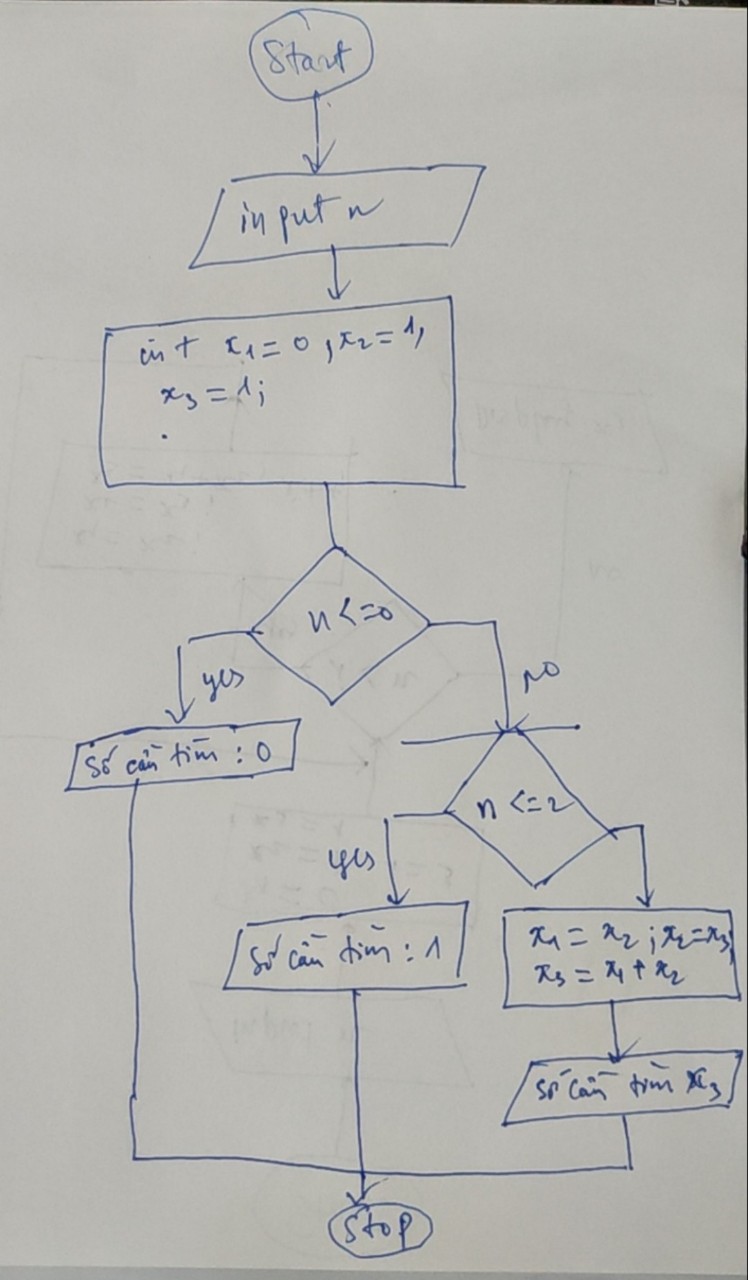 Start
input n
int x₁ = 0, x₂ = 1,
x₃ = 1;
n <= 0
yes
no
Số cần tìm : 0
n <= 2
yes
Số cần tìm : 1
x₁ = x₂ ; x₂ = x₃;
x₃ = x₁ + x₂
Số cần tìm x₃
Stop